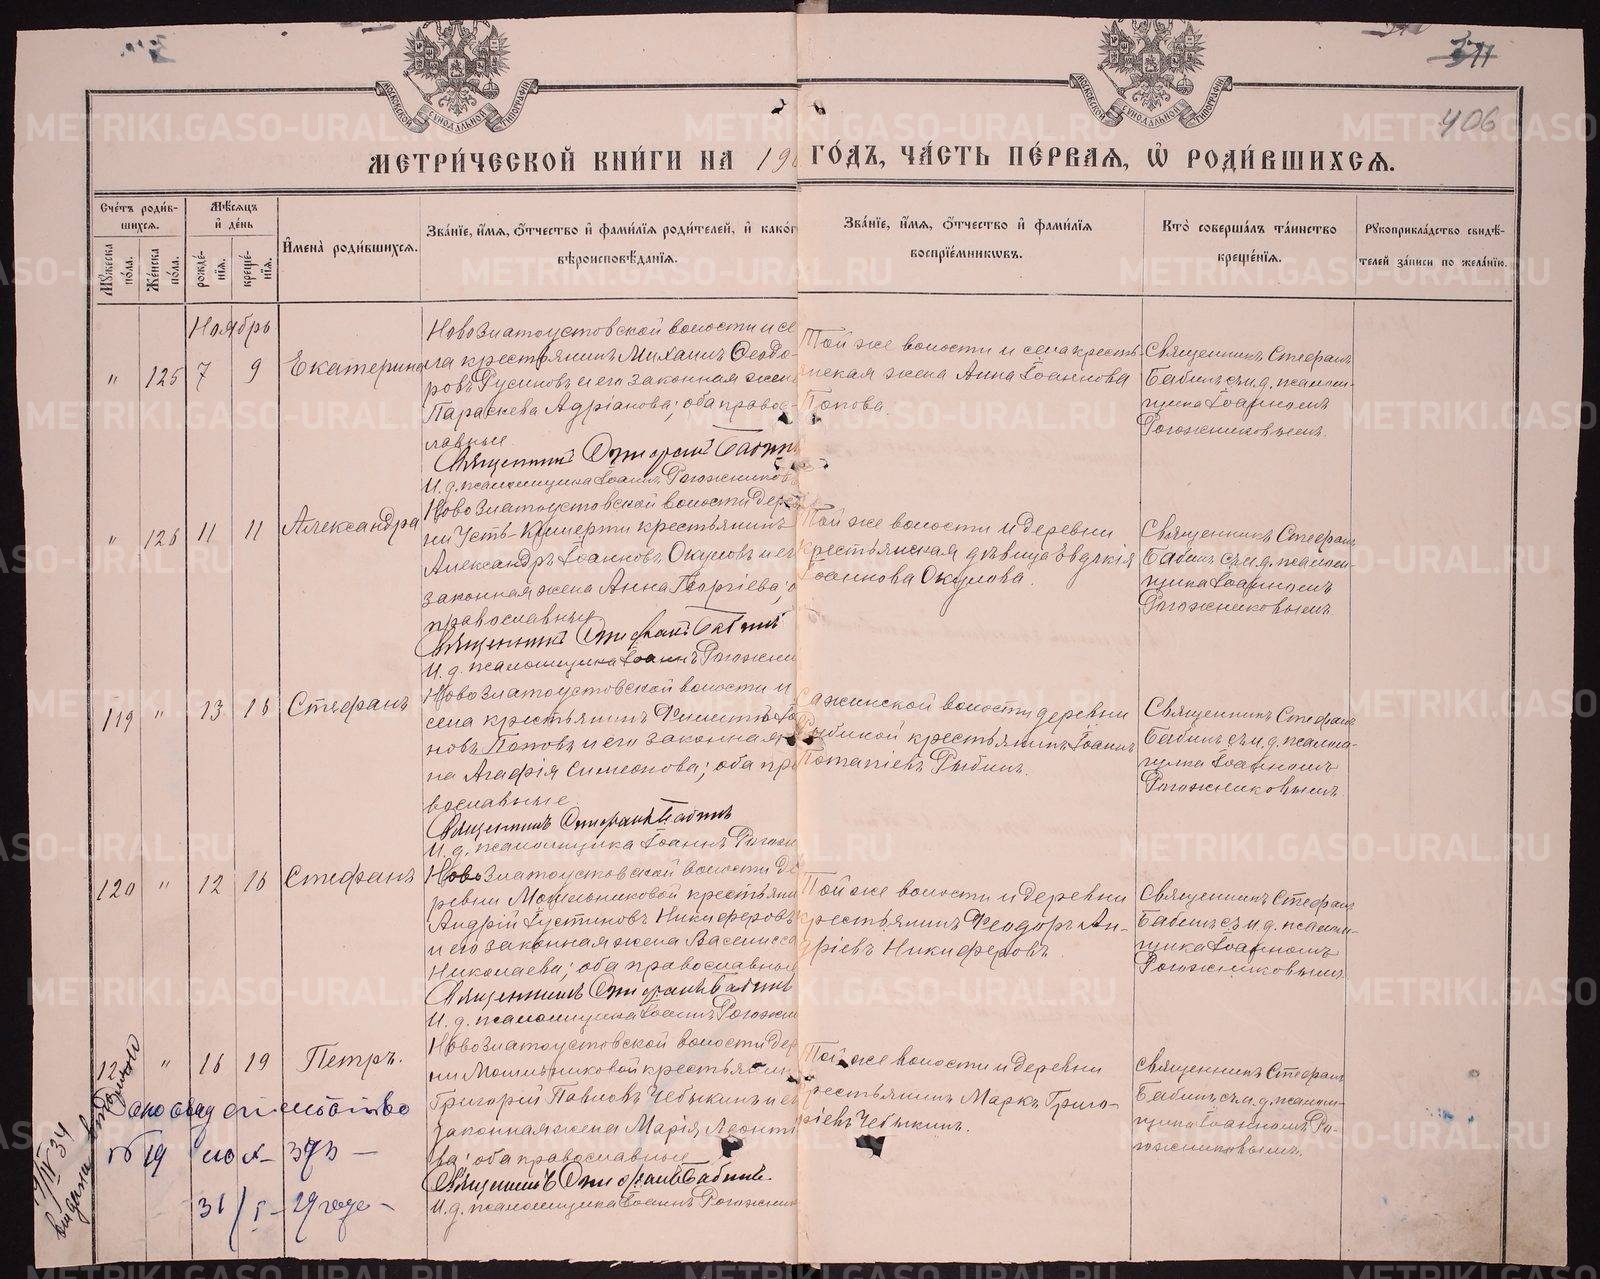 МОСКОВСКОЙ СѴНОДАЛЬНОЙ ТИПОГРАФІИ
МОСКОВСКОЙ СѴНОДАЛЬНОЙ ТИПОГРАФІИ
406
МЕТРИ́ЧЕСКОЙ КНИ́ГИ НА 190 ГО́ДЪ, ЧА́СТЬ ПЕ́РВАЯ, Ѡ҆ РОДИ́ВШИХСЯ.
Сче́тъ роди́в-
шихся.
Мꙋжеска по́ла.
Же́нска по́ла.
Мѣ́сяцъ
и҆ де́нь
рожде́-
нїя.
креще́-
нїя.
И҆мена̀ роди́вшихся.
Зва́нїе, и҆́мя, ѻ҆́тчество и҆ фами́лїя роди́телей, и҆ како́г
вѣроисповѣ́данїя.
Зва́нїе, и҆́мя, ѻ҆́тчество и҆ фами́лїя
воспрїе́мниковъ.
Кто̀ соверша́лъ та́инство
креще́нїя.
Рꙋкоприкла́дство свидѣ́-
телей за́писи по жела́нїю.
Ноябрь
" 125 7 9 Екатерина
НовоЗлатоустовской волости и се
ла крестьянинъ Михаилъ Ѳеодо-
ровъ Русиновъ и его законная жена
Параскева Адріанова; оба право-
лавные
Священникъ Стефанъ Бабинъ
И. д. псаломщика Іоаннъ Рогожников
Той же волости и села кресть-
янская жена Анна Іоаннова
Попова.
Священникъ Стефанъ
Бабинъ съ и. д. псалом-
щика Іоанномъ
Рогожниковымъ.
" 126 11 11 Александра
НовоЗлатоустовской волости дерев
ни Усть-Кишерти крестьянинъ
Александръ Іоанновъ Окуловъ и ег
законная жена Анна Георгіева; о
православные
Священникъ Стефанъ Бабинъ
И. д. псаломщика Іоаннъ Рогожни
Той же волости и деревни
крестьянская дѣвица Евдокія
Іоаннова Окулова.
Священникъ Стефанъ
Бабинъ съ и. д. псалом-
щика Іоанномъ
Рогожниковымъ.
119 " 13 16 Стефанъ
НовоЗлатоустовской волости и
села крестьянинъ Филиппъ Іоа
новъ Поповъ и его законная
на Агафія Симеонова; оба пра
вославные
Священникъ Стефанъ Бабинъ
И. д. псаломщика Іоаннъ Рогожн
Сажинской волости деревни
Рыбиной крестьянинъ Іоаннъ
Потапіевъ Рыбинъ.
Священникъ Стефанъ
Бабинъ съ и. д. псалом-
щика Іоанномъ
Рогожниковымъ.
120 " 12 16 Стефанъ
НовоЗлатоустовской волости де
ревни Мошильниковой крестьяни
Андрій Іустиновъ Никифоровъ
и его законная жена Васснисса
Николаева; оба православные
Священникъ Стефанъ Бабинъ
И. д. псаломщика Іоаннъ Рогожни
Той же волости и деревни
крестьянинъ Ѳеодоръ Ан-
дріевъ Никифоровъ.
Священникъ Стефанъ
Бабинъ съ и. д. псалом-
щика Іоанномъ
Рогожниковымъ.
12 " 16 19 Петръ.
НовоЗлатоустовской волости дер
ни Мошильниковой крестьянин
Григорій Павловъ Чебыкинъ и е
законная жена Марія Леонті
ва; оба православные
Священникъ Стефанъ Бабинъ.
И. д. псаломщика Іоаннъ Рогожни
Той же волости и деревни
крестьянинъ Маркъ Григо-
ріевъ Чебыкинъ.
Священникъ Стефанъ
Бабинъ съ и. д. псалом-
щика Іоанномъ Ро-
гожниковымъ.
31/I - 29 года -
выдана вторично